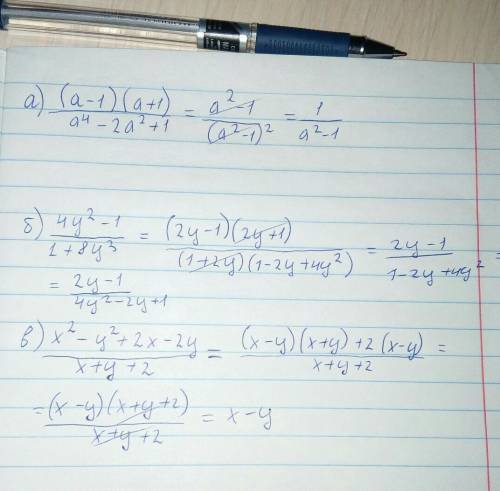 а) (a-1)(a+1)/(a⁴-2a²+1) = (a²-1)/(a²-1)² = 1/(a²-1)
б) (4y²-1)/(1+8y³) = (2y-1)(2y+1)/((1+2y)(1-2y+4y²)) = (2y-1)/(1-2y+4y²) =
= (2y-1)/(4y²-2y+1)
в) (x²-y²+2x-2y)/(x+y+2) = ((x-y)(x+y)+2(x-y))/(x+y+2) =
= (x-y)(x+y+2)/(x+y+2) = x-y